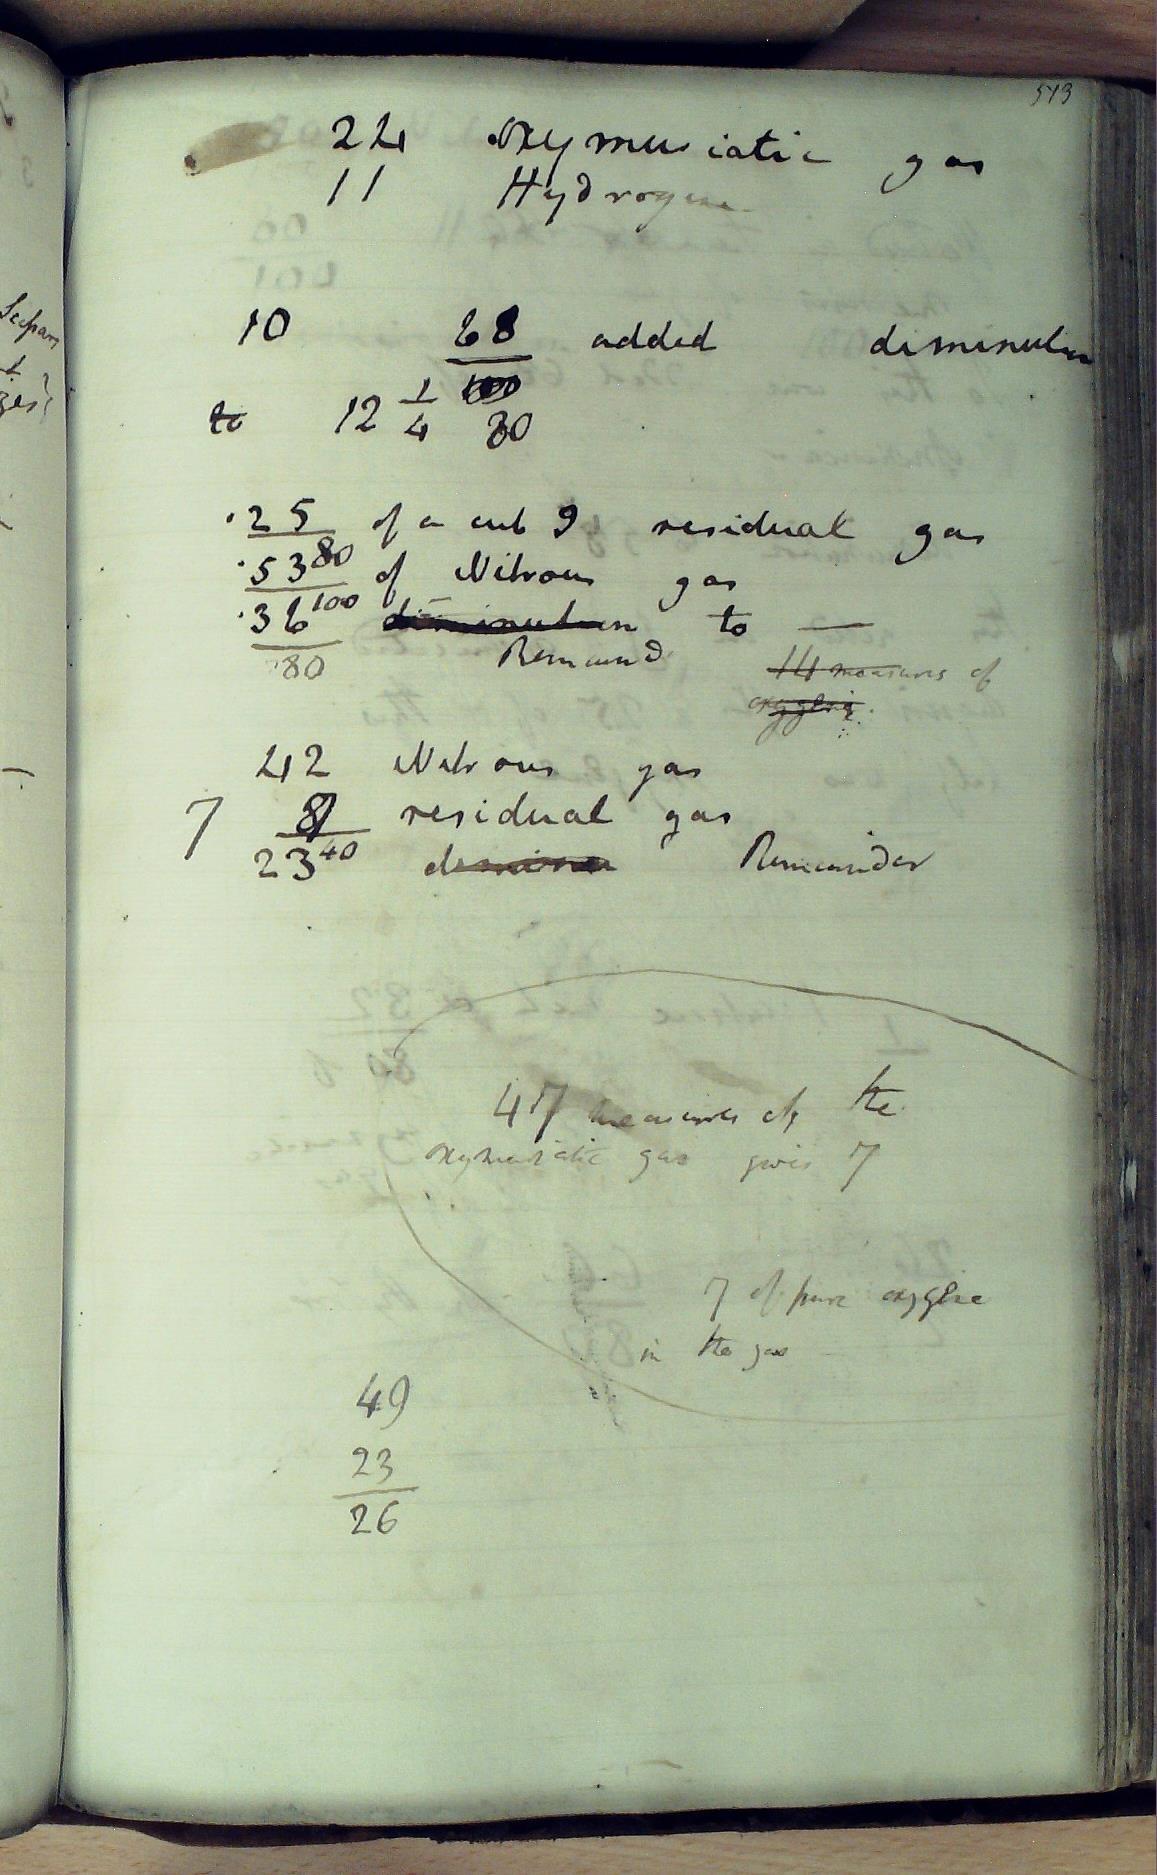 513
22 Oxymuriatic gas
11 Hydrogene
10 68 added diminution
100
to 12 1/4 80
.25 of a cub 9 residual gas
80
.53 of Nitrous gas
100
.36 diminution to —
80 Remaind
14 measures of
oxygene.
42 Nitrous gas
7 8 residual gas
23 40 Remainder
47 measures of the
oxymuriatic gas gives 7
7 of pure oxygene
in the gas
49
23
26